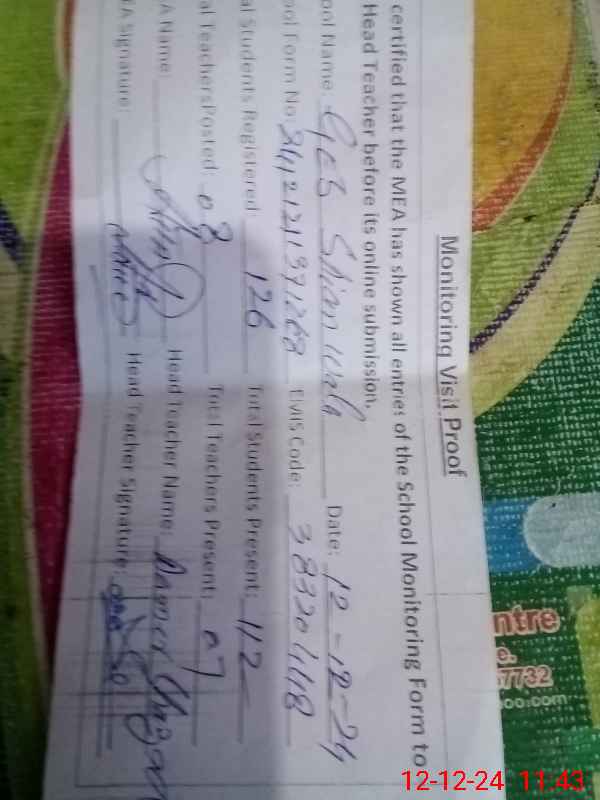 Monitoring Visit Proof
certified that the MEA has shown all entries of the School Monitoring Form to
Head Teacher before its online submission.
ool Name: GES Shian Wala Date: 12-12-24
ool Form No: EMIS Code: 38320448
al Students Registered 126 Total Students Present: 112
al Teachers Posted: 08 Total Teachers Present: 07
A Name: Head Teacher Name:
EA Signature: Head Teacher Signature:
ntre
e.
7732
oo.com
12-12-24 11:43